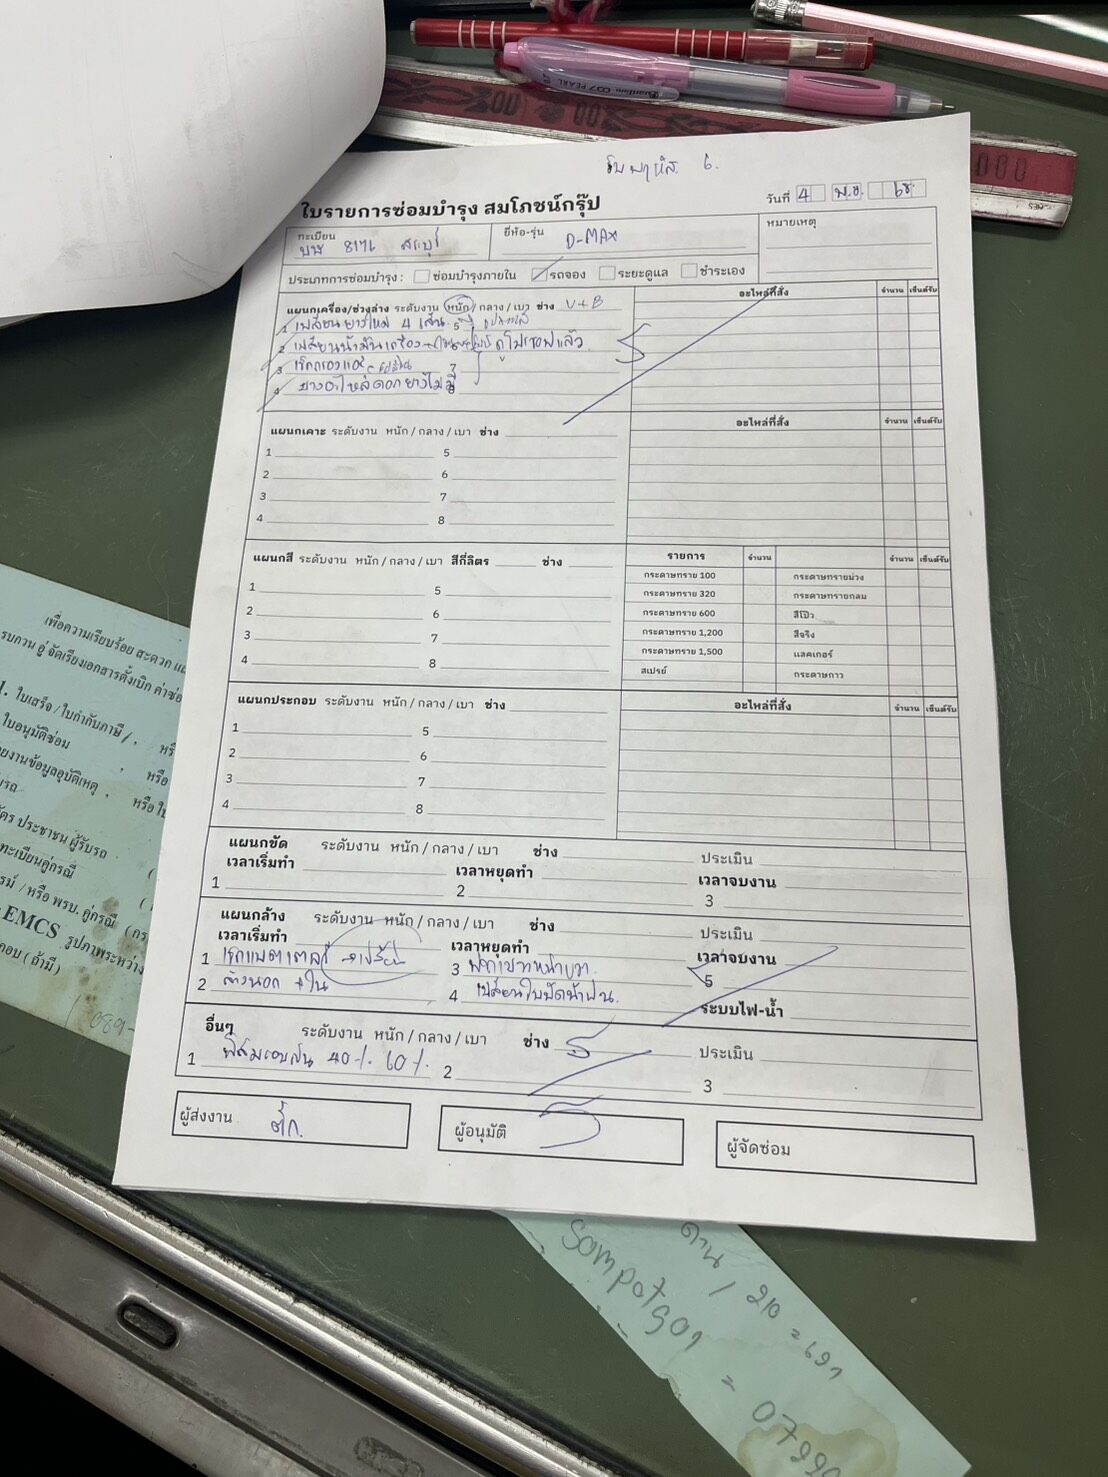 วันที่ 4 พ.ย. 68
ใบรายการซ่อมบำรุง สมโภชน์กรุ๊ป
ทะเบียน 8176 สระบุรี ยี่ห้อ-รุ่น D-MAX หมายเหตุ
ประเภทการซ่อมบำรุง : ซ่อมบำรุงภายใน รถจอง ระยะดูแล ชำระเอง
แผนกเครื่อง/ช่วงล่าง ระดับงาน หนัก / กลาง / เบา ช่าง V+B อะไหล่ที่สั่ง จำนวน เซ็นต์รับ
1 เปลี่ยนยางใหม่ 4 เส้น 5
2 เปลี่ยนน้ำมันเครื่อง 6
3 เช็คกรองแอร์ 7
4 ยางอะไหล่ดอกยางไม่มี 8
แผนกเคาะ ระดับงาน หนัก / กลาง / เบา ช่าง อะไหล่ที่สั่ง จำนวน เซ็นต์รับ
1 5
2 6
3 7
4 8
แผนกสี ระดับงาน หนัก / กลาง / เบา สีกี่ลิตร ช่าง รายการ จำนวน จำนวน เซ็นต์รับ
1 5 กระดาษทราย 100 กระดาษทรายม่วง
2 6 กระดาษทราย 320 กระดาษทรายกลม
3 7 กระดาษทราย 600 สีโป๊ว
4 8 กระดาษทราย 1,200 สีจริง
กระดาษทราย 1,500 แลคเกอร์
สเปรย์ กระดาษกาว
แผนกประกอบ ระดับงาน หนัก / กลาง / เบา ช่าง อะไหล่ที่สั่ง จำนวน เซ็นต์รับ
1 5
2 6
3 7
4 8
แผนกขัด ระดับงาน หนัก / กลาง / เบา ช่าง ประเมิน
เวลาเริ่มทำ เวลาหยุดทำ เวลาจบงาน
1 2 3
แผนกล้าง ระดับงาน หนัก / กลาง / เบา ช่าง ประเมิน
เวลาเริ่มทำ เวลาหยุดทำ เวลาจบงาน
1 เช็กแบตเตอรี่ 3 5
2 ล้างนอก + ใน 4 เปลี่ยนใบปัดน้ำฝน ระบบไฟ-น้ำ
อื่นๆ ระดับงาน หนัก / กลาง / เบา ช่าง ประเมิน
1 ฟิล์มรอบคัน 40% 60% 2 3
ผู้ส่งงาน ผู้อนุมัติ ผู้จัดซ่อม
เพื่อความเรียบร้อย สะดวก
รบกวน อู่ จัดเรียงเอกสารตั้งเบิก ค่าซ่อ
1. ใบเสร็จ / ใบกำกับภาษี / . หรื
ใบอนุมัติซ่อม , หรือ
ยงานข้อมูลอุบัติเหตุ , หรือ ใบ
ัตร ประชาชน ผู้รับรถ
ทะเบียนคู่กรณี (
/ หรือ พรบ. คู่กรณี (
EMCS รูปภาพระหว่าง
กอบ (ถ้ามี)